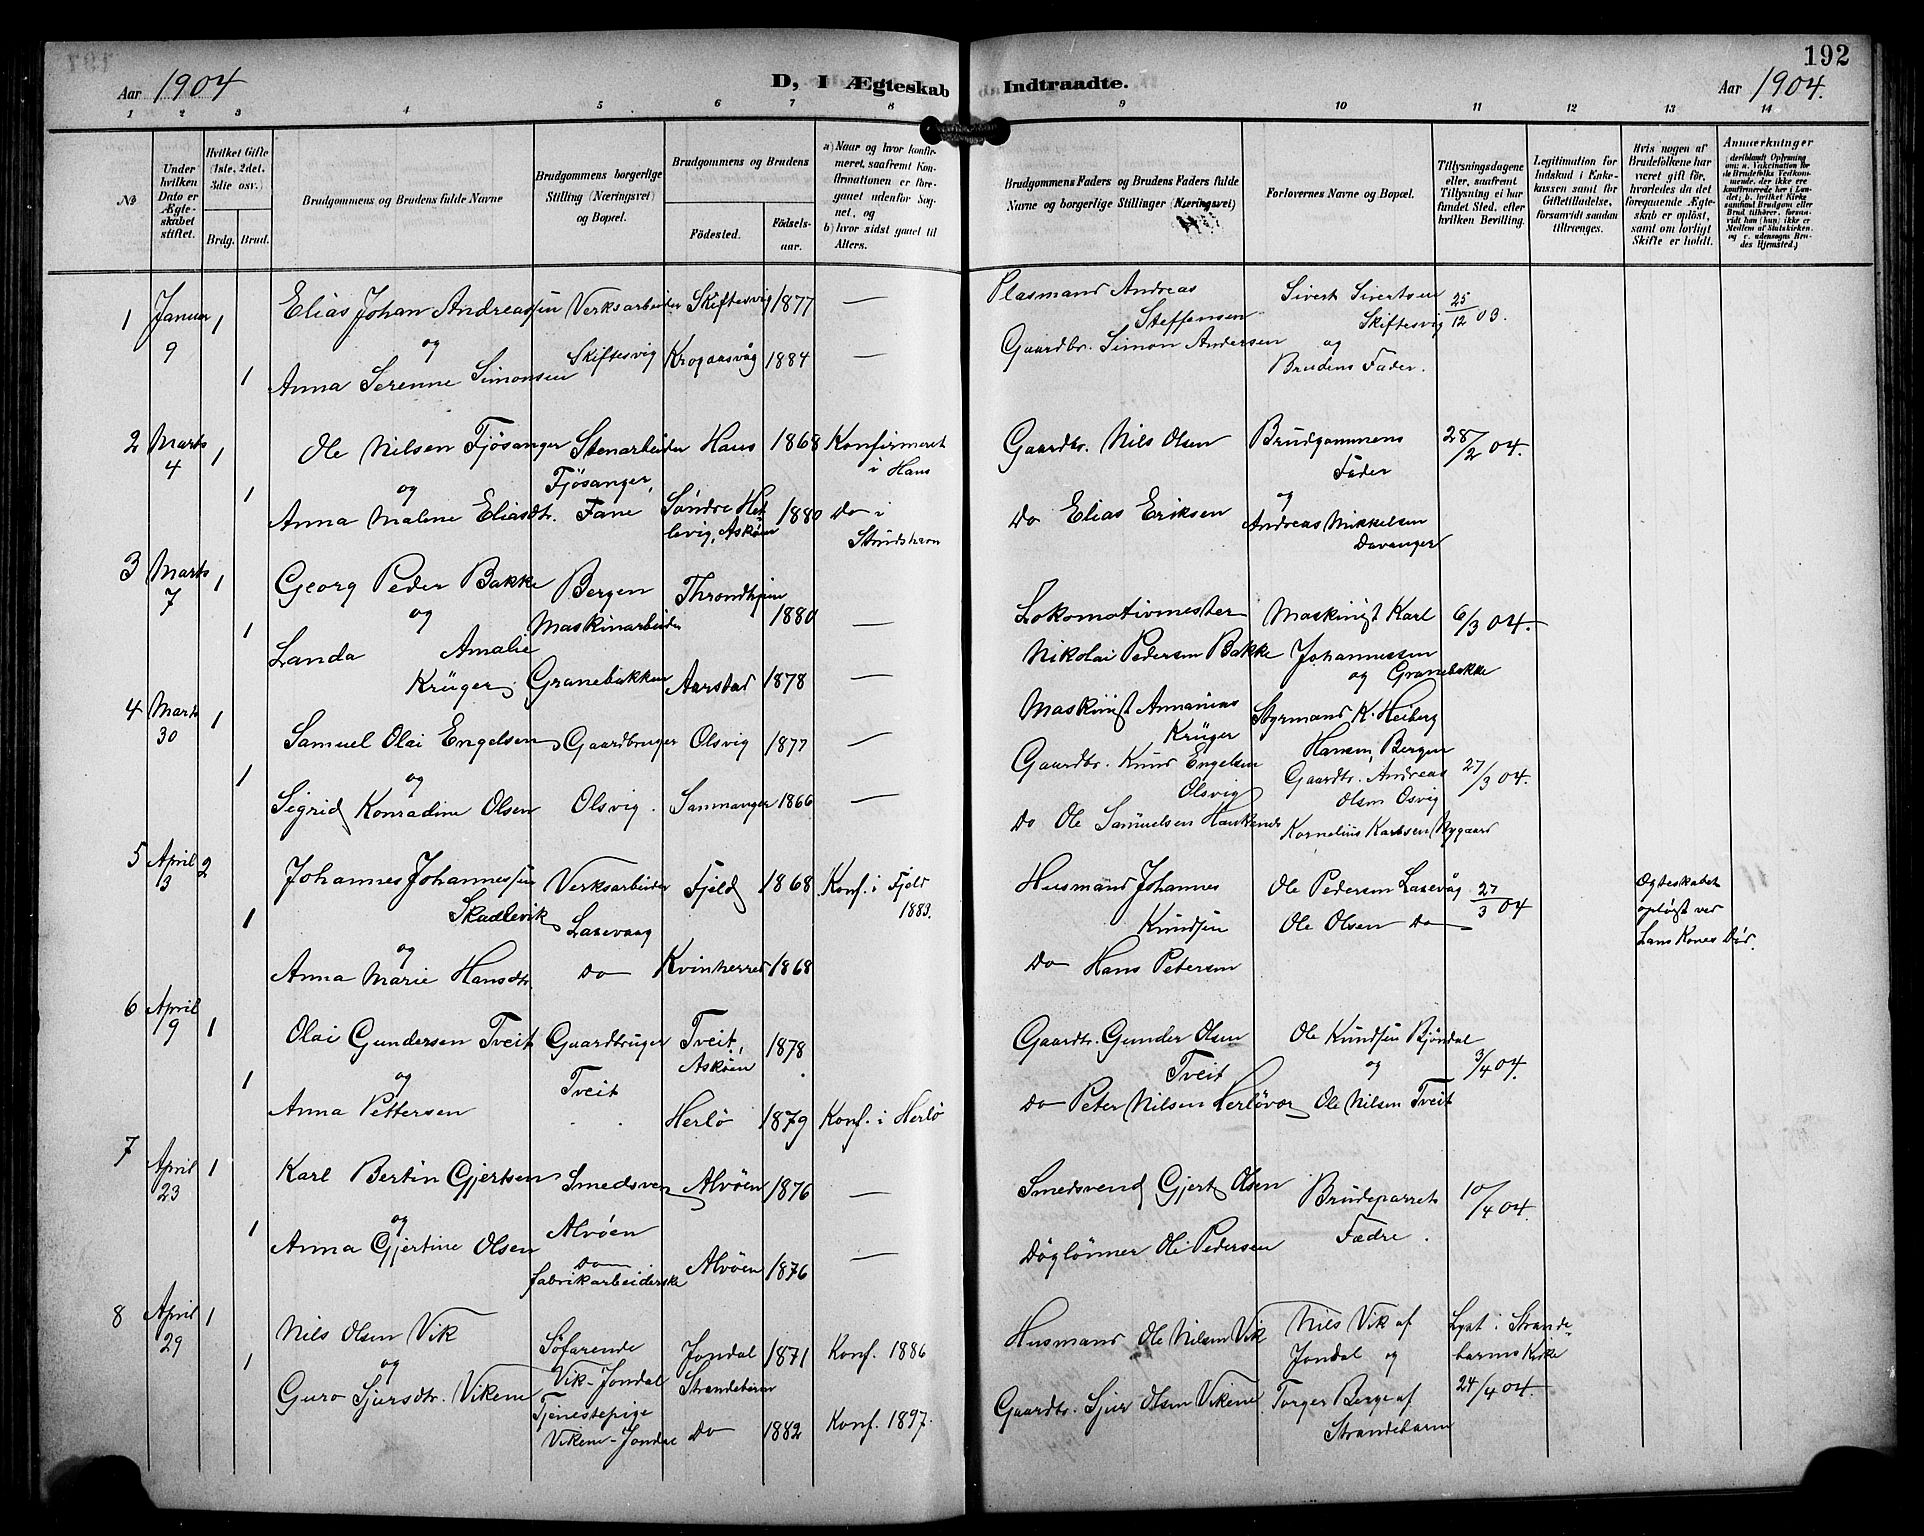 192
Aar 1904
D, I Ægteskab Indtraadte.
Aar 1904.
1 2 3 4 5 6 7 8 9 10 11 12 13 14
№
Under hvilken Dato er Ægteskabet stiftet.
Hvilket Gifte (1ste, 2det, 3die osv.)
Brdg. Brud.
Brudgommens og Brudens fulde Navne
Brudgommens borgerlige Stilling (Næringsvei) og Bopæl.
Brudgommens og Brudens
Fødested.
Fødselsaar.
a) Naar og hvor konfirmeret, saafremt Konfirmationen er foregaaet udenfor Sognet, og
b) hvor sidst gaaet til Alters.
Brudgommens Faders og Brudens Faders fulde Navne og borgerlige Stillinger (Næringsvei)
Forlovernes Navne og Bopæl.
Tillysningsdagene eller, saafremt Tillysning ei har fundet Sted, efter hvilken Bevilling.
Legitimation for Indskud i Enkekassen samt for Giftetilladelse, forsaavidt saadan tiltrænges.
Hvis nogen af Brudefolkene har været gift før, hvorledes da det foregaaende Ægteskab er opløst, samt om lovligt Skifte er holdt.
Anmærkninger
(deriblandt Oplysning om: a. Vakcination for de Brudefolks Vedkommende, der ikke ere konfirmerede her i Landet; b. hvilket Kirkesamfund Brudgom eller Brud tilhører, forsaavidt han (hun) ikke er Medlem af Statskirken, og c. udensogns Brudes Hjemsted.)
1 Januar 9 1 Elias Johan Andreassen Verksarbeider Skiftesvig 1877 —
Plasmand Andreas Steffensen Sivert Sivertsen Skiftesvig 25/12 03.
og Skiftesvig
1 Anna Serenne Simonsen Krogaasvåg 1884 —
Gaardbr. Simon Andersen og Brudens Fader.
2 Marts 4 1 Ole Nilsen Fjøsanger Stenarbeider Haus 1868 Konfirmeret i Haus
Gaardbr. Nils Olsen Brudgommens Fader 28/2 04.
og Fjøsanger, Fane
1 Anna Malene Eliasdtr. Søndre Hetlevig, Askøen 1880 Do i
Do Elias Eriksen og Andreas Mikkelsen Davanger
3 Marts 7 1 Georg Peder Bakke Bergen Maskinarbeider Throndhjem 1880 —
Lokomotivmester Nikolai Pedersen Bakke Maskinist Karl Johannessen Granebakke 6/3 04.
og
1 Landa Amalie Krüger. Granebakken Aarstad 1878 —
Maskinist Annanias Krüger og Styrmand K. Heiberg Hansen, Bergen
4 Marts 30 1 Samuel Olai Engelsen Gaardbruger Olsvig 1877 —
Gaardbr. Knud Engelsen Olsvig Gaardbr. Andreas Olsen Osvig 27/3 04.
og
1 Sigrid Konradine Olsen Olsvig. Sammanger 1866 —
Do Ole Samuelsen Haukenes Kornelius Karlsen Nygaard
5 April 3 2 Johannes Johannessen Skadlevik Verksarbeider Laxevaag Fjeld 1868 Konf. i Fjeld 1883.
Husmand Johannes Knudsen Ole Pedersen Laxevåg 27/3 04
Ægteskabet opløst ved hans Kones Død.
og
1 Anna Marie Hansdtr. Do Kvinherred 1868
Do Hans Petersen Ole Olsen Do
6 April 9 1 Olai Gundersen Tveit Gaardbruger Tveit Tveit, Askøen 1878
Gaardbr. Gunder Olsen Tveit Ole Knudsen Bjøndal 3/4 04.
og
1 Anna Pettersen Herlø 1879 Konf. i Herlø
Do Peter Nilsen Herløvær og Ole Nilsen Tveit
7 April 23 1 Karl Bertin Gjertsen Smedsvend Alvøen Alvøen 1876 —
Smedsvend Gjert Olsen Brudeparrets Fædre. 10/4 04.
og
1 Anna Gjertine Olsen Do fabrikarbeiderske Alvøen 1876 —
Døglønner Ole Pedersen
8 April 29 1 Nils Olsen Vik Søfarende Vik-Jondal Jondal 1871 Konf. 1886
Husmand Ole Nilsen Vik Nils Vik af Jondal og Lyst i Strandebarms Kirke 24/4 04.
og Strandebarm
1 Guro Sjursdtr. Vikene Tjenestepige Vikene-Jondal Do 1882 Konf. 1897.
Gaardbr. Sjur Olsen Vikene Torger Berge af Strandebarm